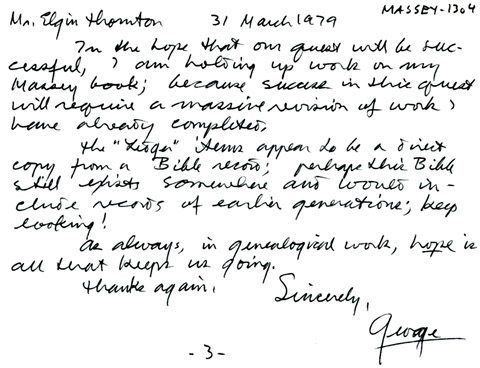 MASSEY-1304
Mr. Elgin Thornton 31 March 1979
In the hope that our quest will be suc-
cessful, I am holding up work on my
Massey book; because success in this quest
will require a massive revision of work I
have already completed.
The "Ledger" items appear to be a direct
copy from a Bible record; perhaps this Bible
still exists somewhere and would in-
clude records of earlier generations; keep
looking!
As always, in genealogical work, hope is
all that keeps us going.
Thanks again.
Sincerely,
George
-3-